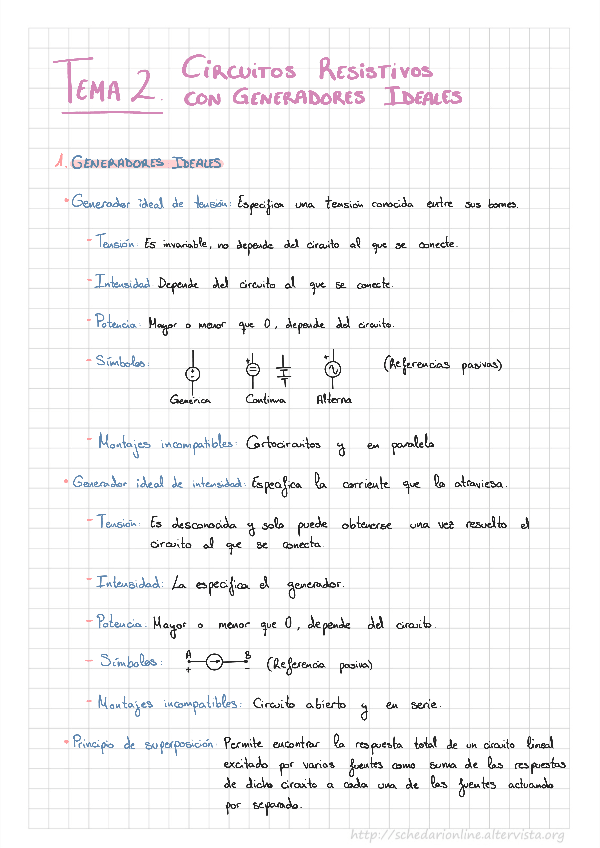 TEMA 2. CIRCUITOS RESISTIVOS
CON GENERADORES IDEALES
1. GENERADORES IDEALES
• Generador ideal de tensión: Especifica una tensión conocida entre sus bornes.
- Tensión: Es invariable, no depende del circuito al que se conecte.
- Intensidad: Depende del circuito al que se conecte.
- Potencia: Mayor o menor que 0, depende del circuito.
- Símbolos: (Referencias pasivas)
Genérica Continua Alterna
- Montajes incompatibles: Cortocircuitos y en paralelo
• Generador ideal de intensidad: Especifica la corriente que lo atraviesa.
- Tensión: Es desconocida y solo puede obtenerse una vez resuelto el
circuito al que se conecta.
- Intensidad: La especifica el generador.
- Potencia: Mayor o menor que 0, depende del circuito.
- Símbolos: A + B - (Referencia pasiva)
- Montajes incompatibles: Circuito abierto y en serie.
• Principio de superposición: Permite encontrar la respuesta total de un circuito lineal
excitado por varias fuentes como suma de las respuestas
de dicho circuito a cada una de las fuentes actuando
por separado.
http://schedarionline.altervista.org